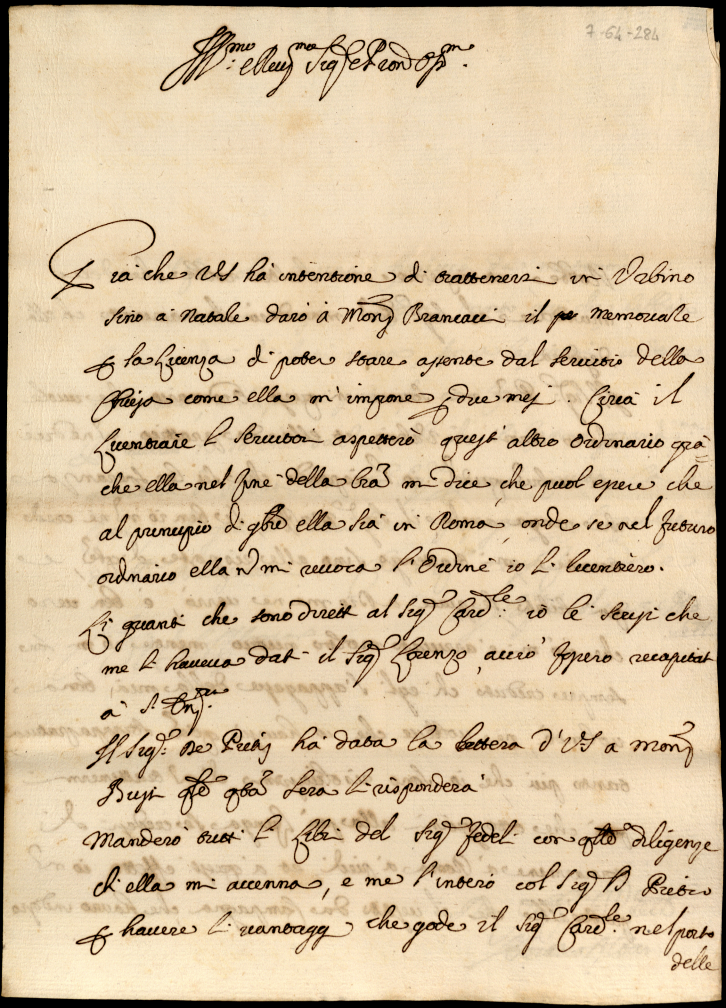 7-64-284
Ill.mo e Rev.mo Sig.r e Pron Oss.m
Già che VS hà intentione di trattenersi in Urbino
sino à Natale darò à Mons.r Brancacci il pe memoriale
p la licenza di poter stare assente dal servitio della
Chiesa come ella m'impone p due mesi. Circa il
licentiare li servitori aspetterò quest'altro ordinario già
che ella nel fine della lra mi dice, che puol essere che
al principio di 9bre ella sia in Roma, onde se nel futuro
ordinario ella nõ mi revoca l'ordine io li licentierò.
Li guanti che sono diretti al Sig.r Card.le io le scrissi che
me li haveva dati il Sig.r Lorenzo, acciò fossero recapitati
à S.
Il Sig.r De Pretis hà data la lettera d'VS a Mons.r
Bussi qle qta sera li risponderà
Manderò tutti li libri del Sig.r Fedeli con qlle diligenze
ch'ella mi accenna, e me l'intero col Sig.r D Pietro
p havere li vantaggi che gode il Sig.r Card.le nel porto
delle